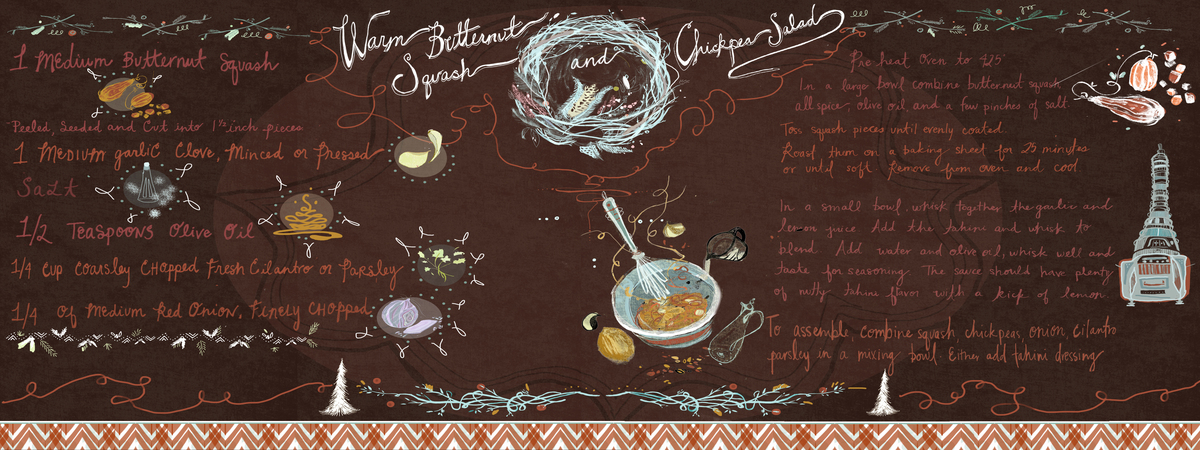 Warm Butternut
Squash
and
Chickpea Salad
1 Medium Butternut Squash
Peeled, Seeded and Cut into 1 1/2 inch pieces
1 Medium garlic Clove, Minced or Pressed
Salt
1/2 Teaspoons Olive Oil
1/4 cup Coarsley Chopped Fresh Cilantro or Parsley
1/4 of Medium Red Onion, Finely Chopped
Pre heat Oven to 425°
In a large bowl combine butternut squash
all spice, olive oil, and a few pinches of salt.
Toss squash pieces until evenly coated.
Roast them on a baking sheet for 25 minutes
or until soft. Remove from oven and cool
In a small bowl, whisk together the garlic and
lemon juice. Add the tahini and whisk to
blend. Add water and olive oil, whisk well and
taste for seasoning. The sauce should have plenty
of nutty tahini flavor with a kick of lemon
To assemble combine squash chickpeas, onion, cilantro
parsley in a mixing bowl. Either add tahini dressing